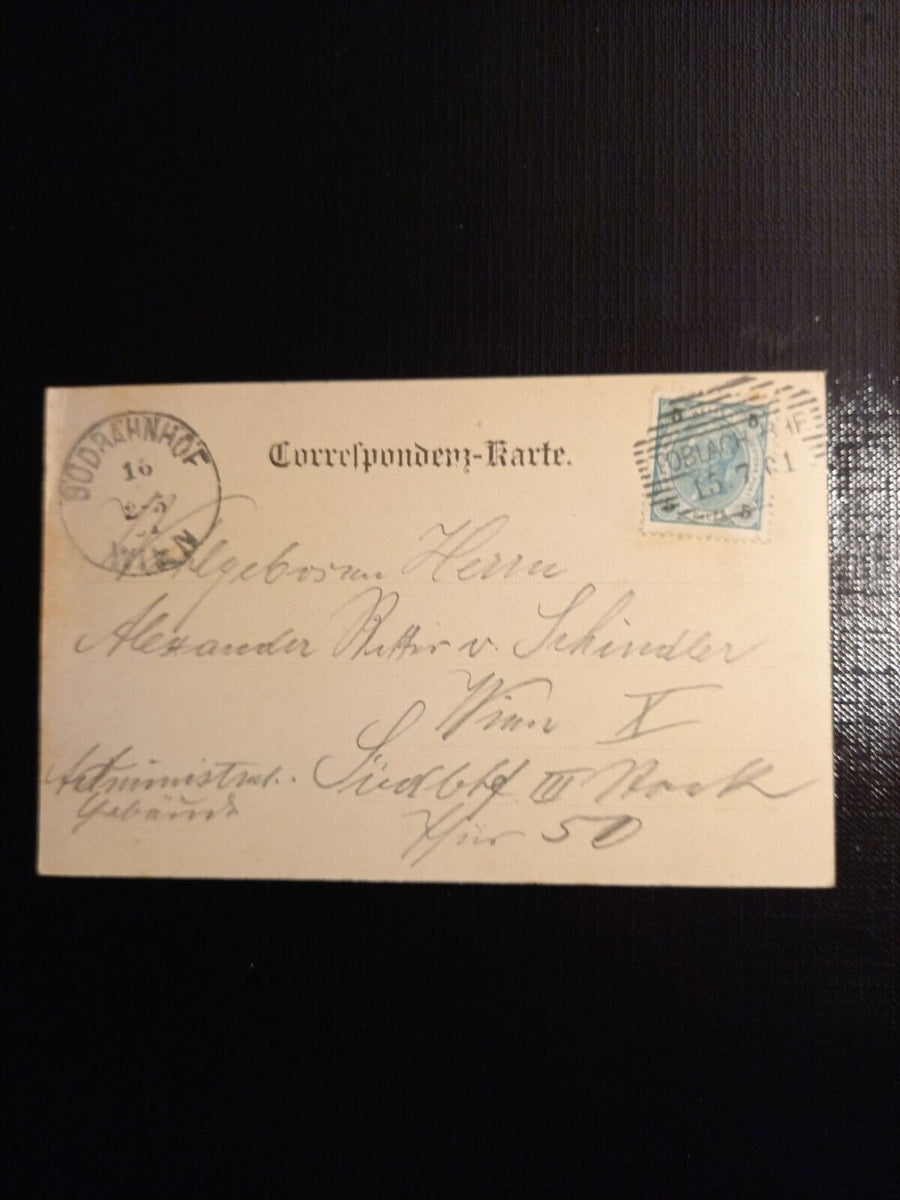 SÜDBAHNHOF
16
WIEN
Correspondenz-Karte.
5 5
TOBLACH
15 7 01
5
Wohlgeboren Herrn
Alexander Ritter v. Schindler
Wien X
Administrat. Südbhf III Stock
Gebäude
Thür 50